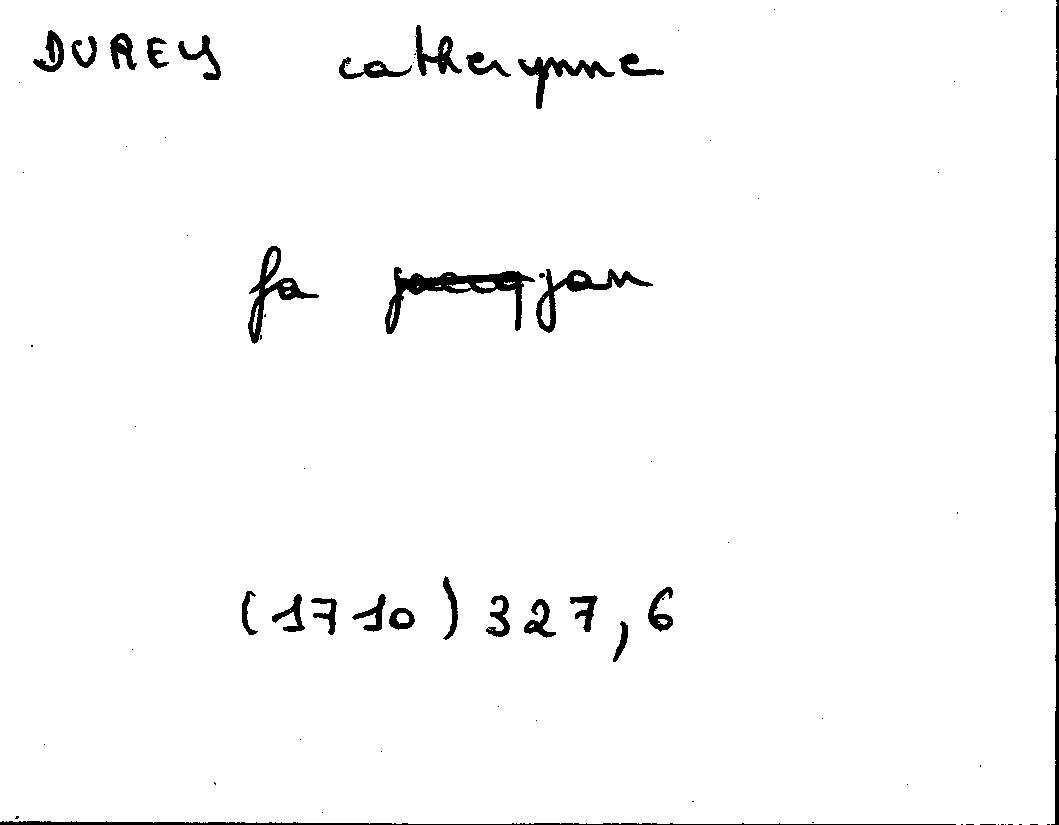 DUREYS catherynne
fa jan
(1710) 327,6